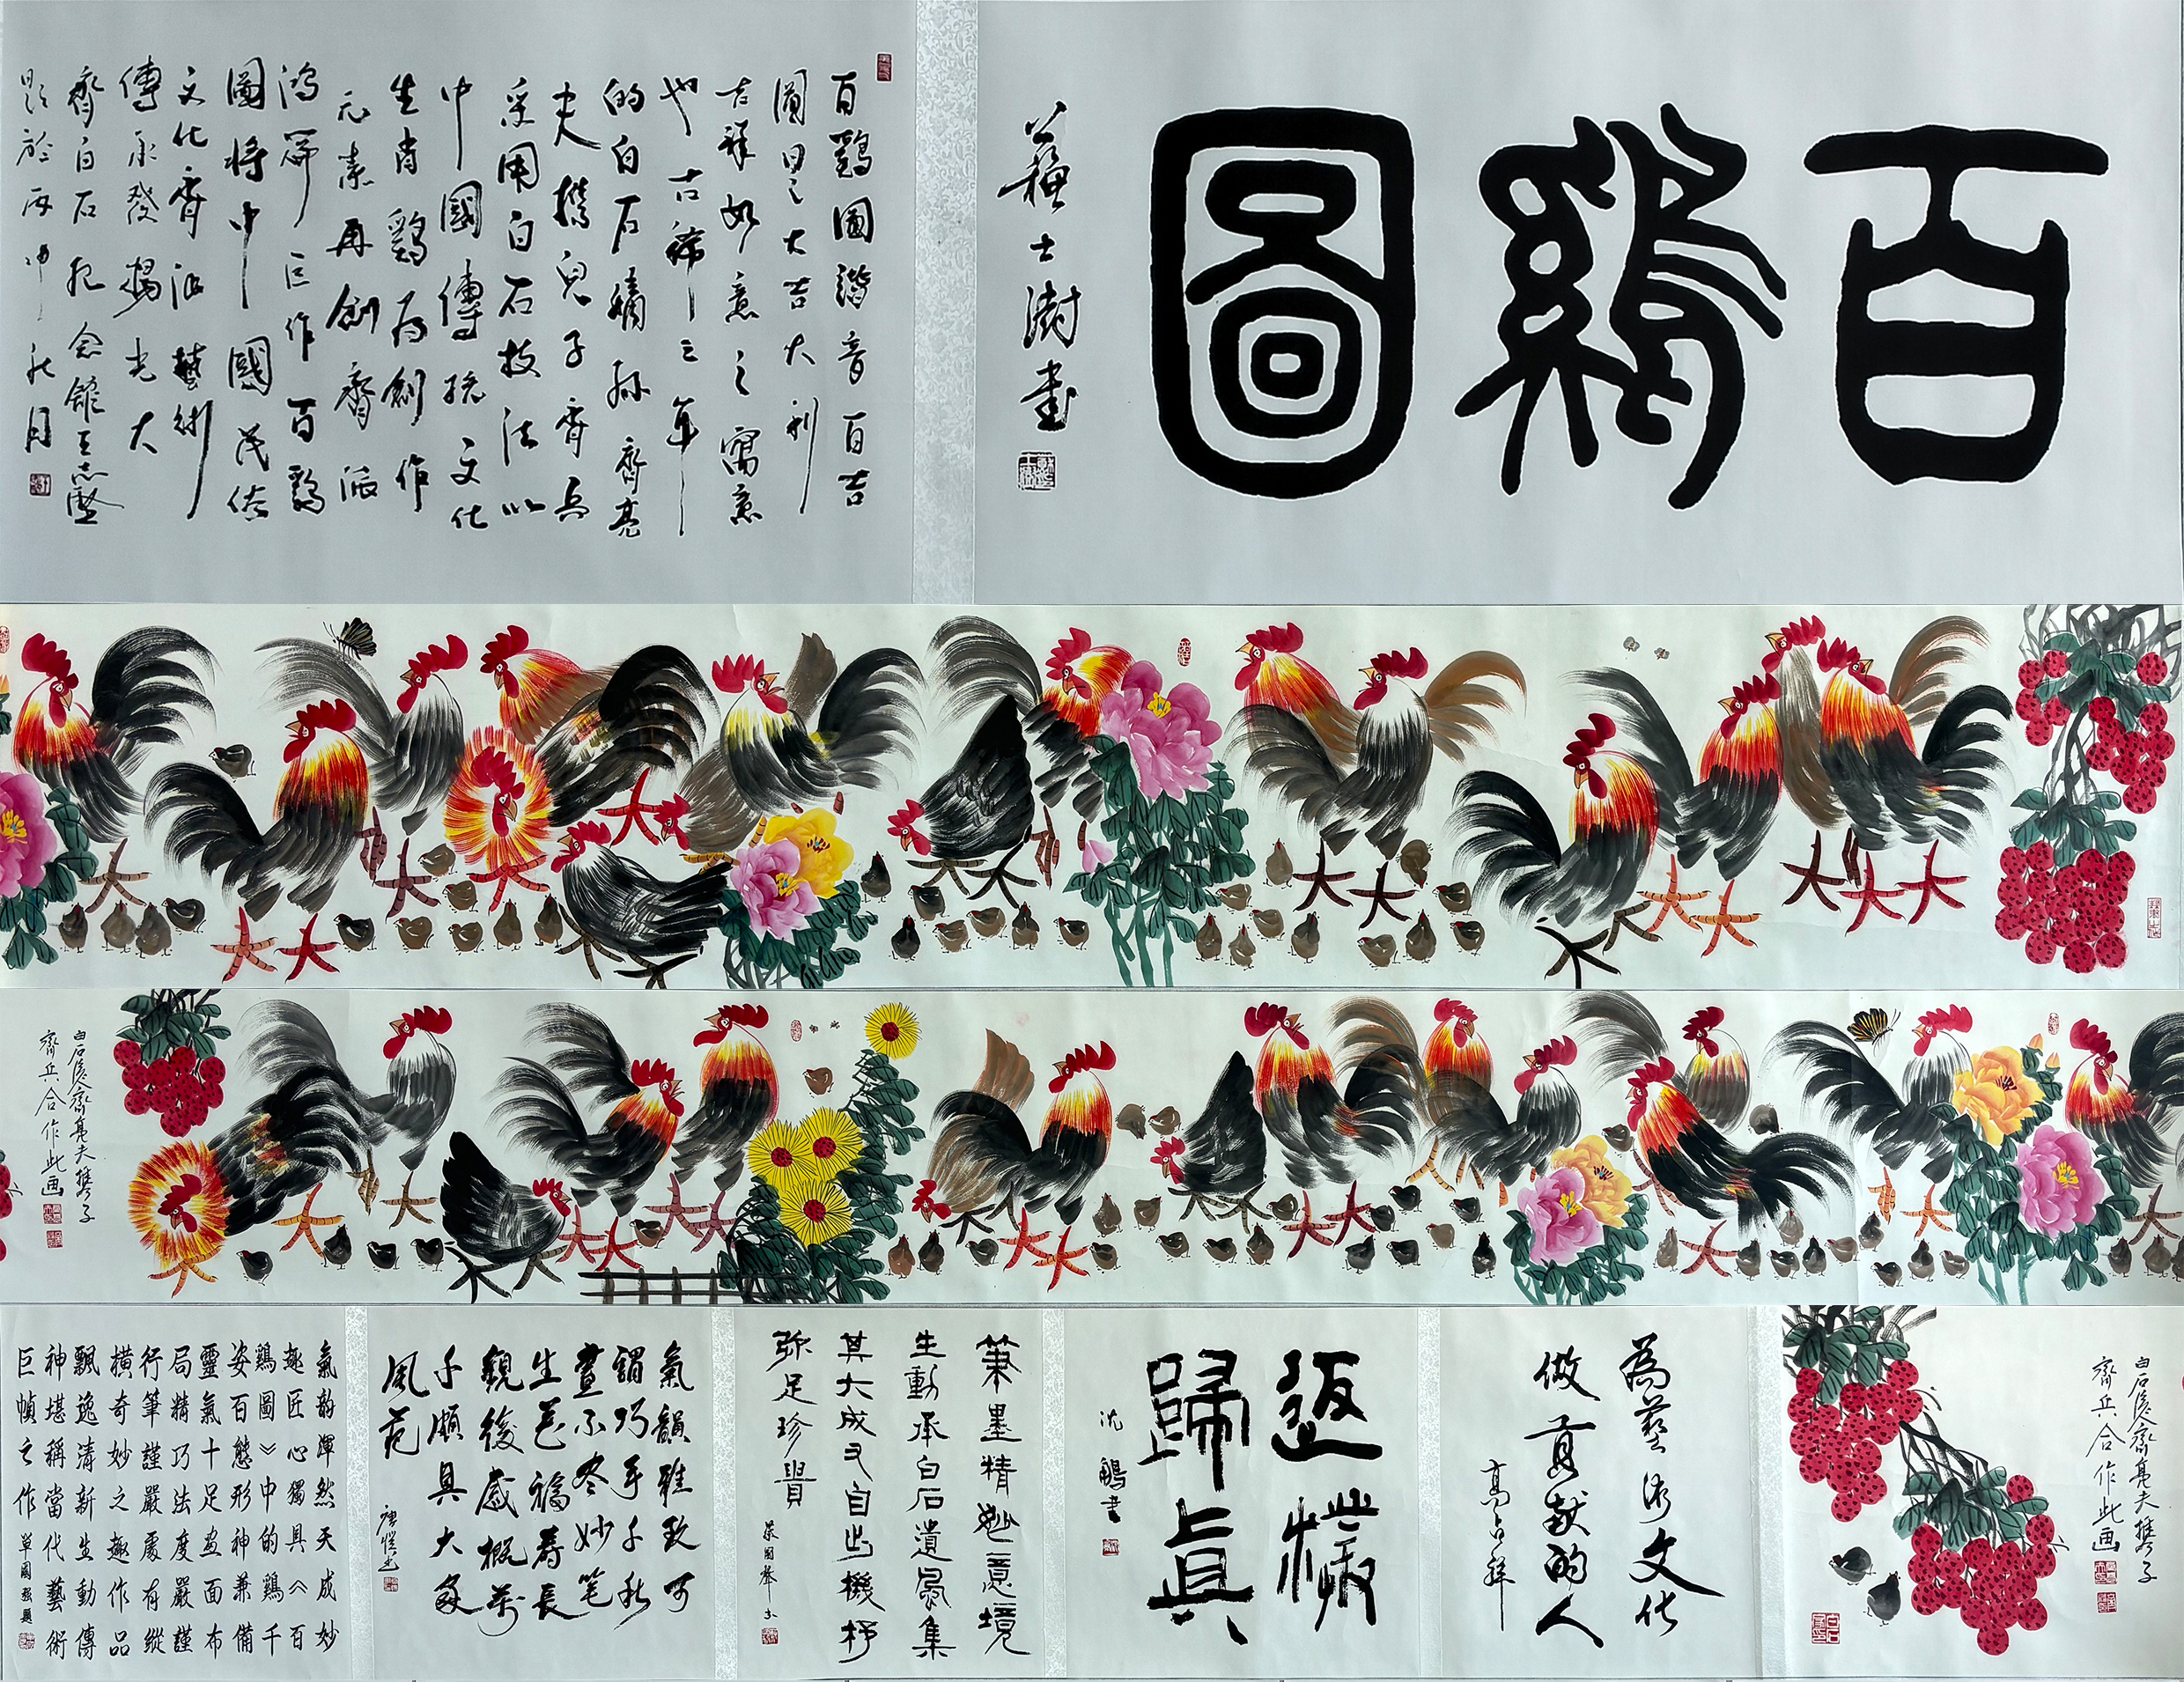 百鷄圖
蘇士澍書
百鷄圖諧音百吉
圖曰之大吉大利
吉祥如意之寓意
也古稀之年
的白石嫡孫齊亮
夫攜兒子齊兵
采用白石技法以
中國傳統文化
生肖鷄爲創作
元素再創齊派
鴻篇巨作百鷄
圖將中國民俗
文化齊派藝術
傳承發揚光大
齊白石紀念館王志堅
題於丙申秋月
白石後人齊亮夫攜子
齊兵合作此画
白石後人齊亮夫攜子
齊兵合作此画
為藝術文化
做貢献的人
高占祥
返樸
歸真
沈鵬書
筆墨精妙意境
生動承白石遺風集
其大成又自出機杼
弥足珍貴
氣韻雅致可
謂巧手千秋
畫不尽妙笔
生花福壽長
觀後感概萬
千頗具大家
風范
唐愷书
氣韵渾然天成妙
趣匠心獨具《百
鷄圖》中的鷄千
姿百態形神兼備
靈氣十足画面布
局精巧法度嚴謹
行筆謹嚴處有縱
橫奇妙之趣作品
飄逸清新生動傳
神堪稱當代藝術
巨幀之作
單國强題